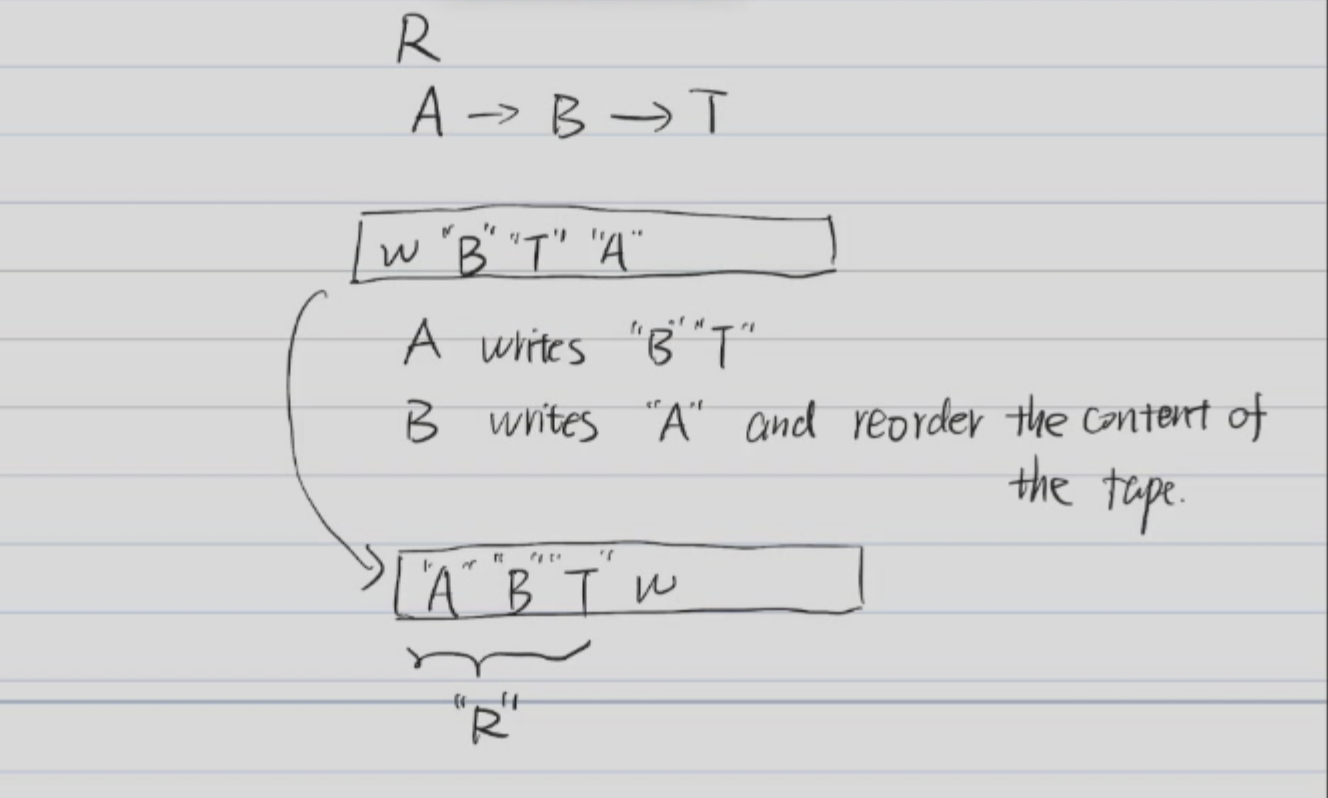 R
A → B → T
w "B" "T" "A"
A writes "B" "T"
B writes "A" and reorder the content of
the tape.
"A" "B" "T" w
"R"